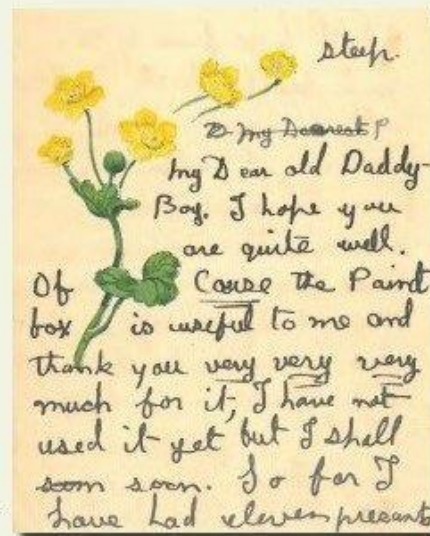 steep.
My Dearest
My Dear old Daddy-
Boy. I hope you
are quite well.
Of Cause the Paint
box is useful to me and
thank you very very very
much for it, I have not
used it yet but I shall
soom soon. So far I
have had eleven presents